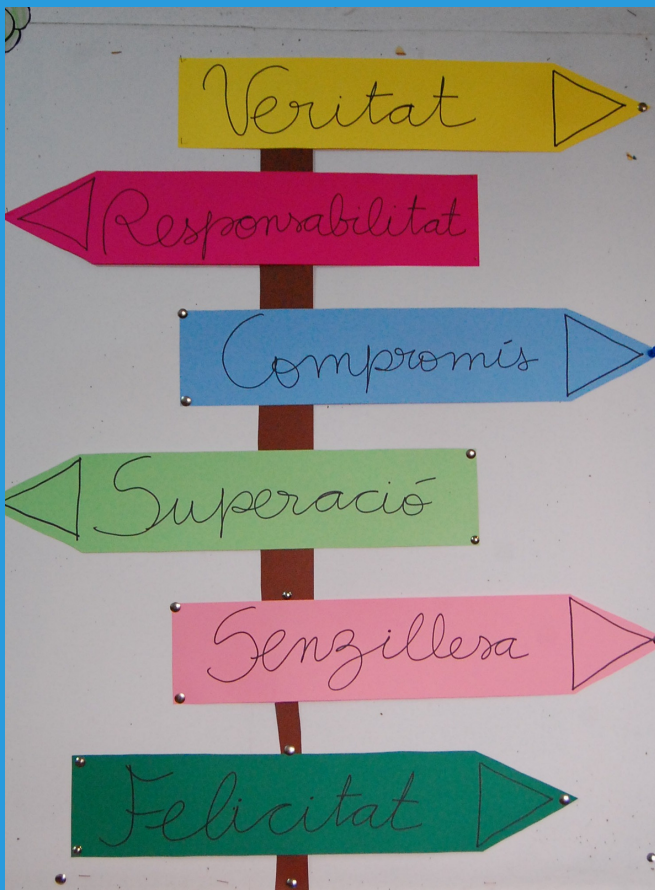 Veritat
Responsabilitat
Compromís
Superació
Senzillesa
Felicitat